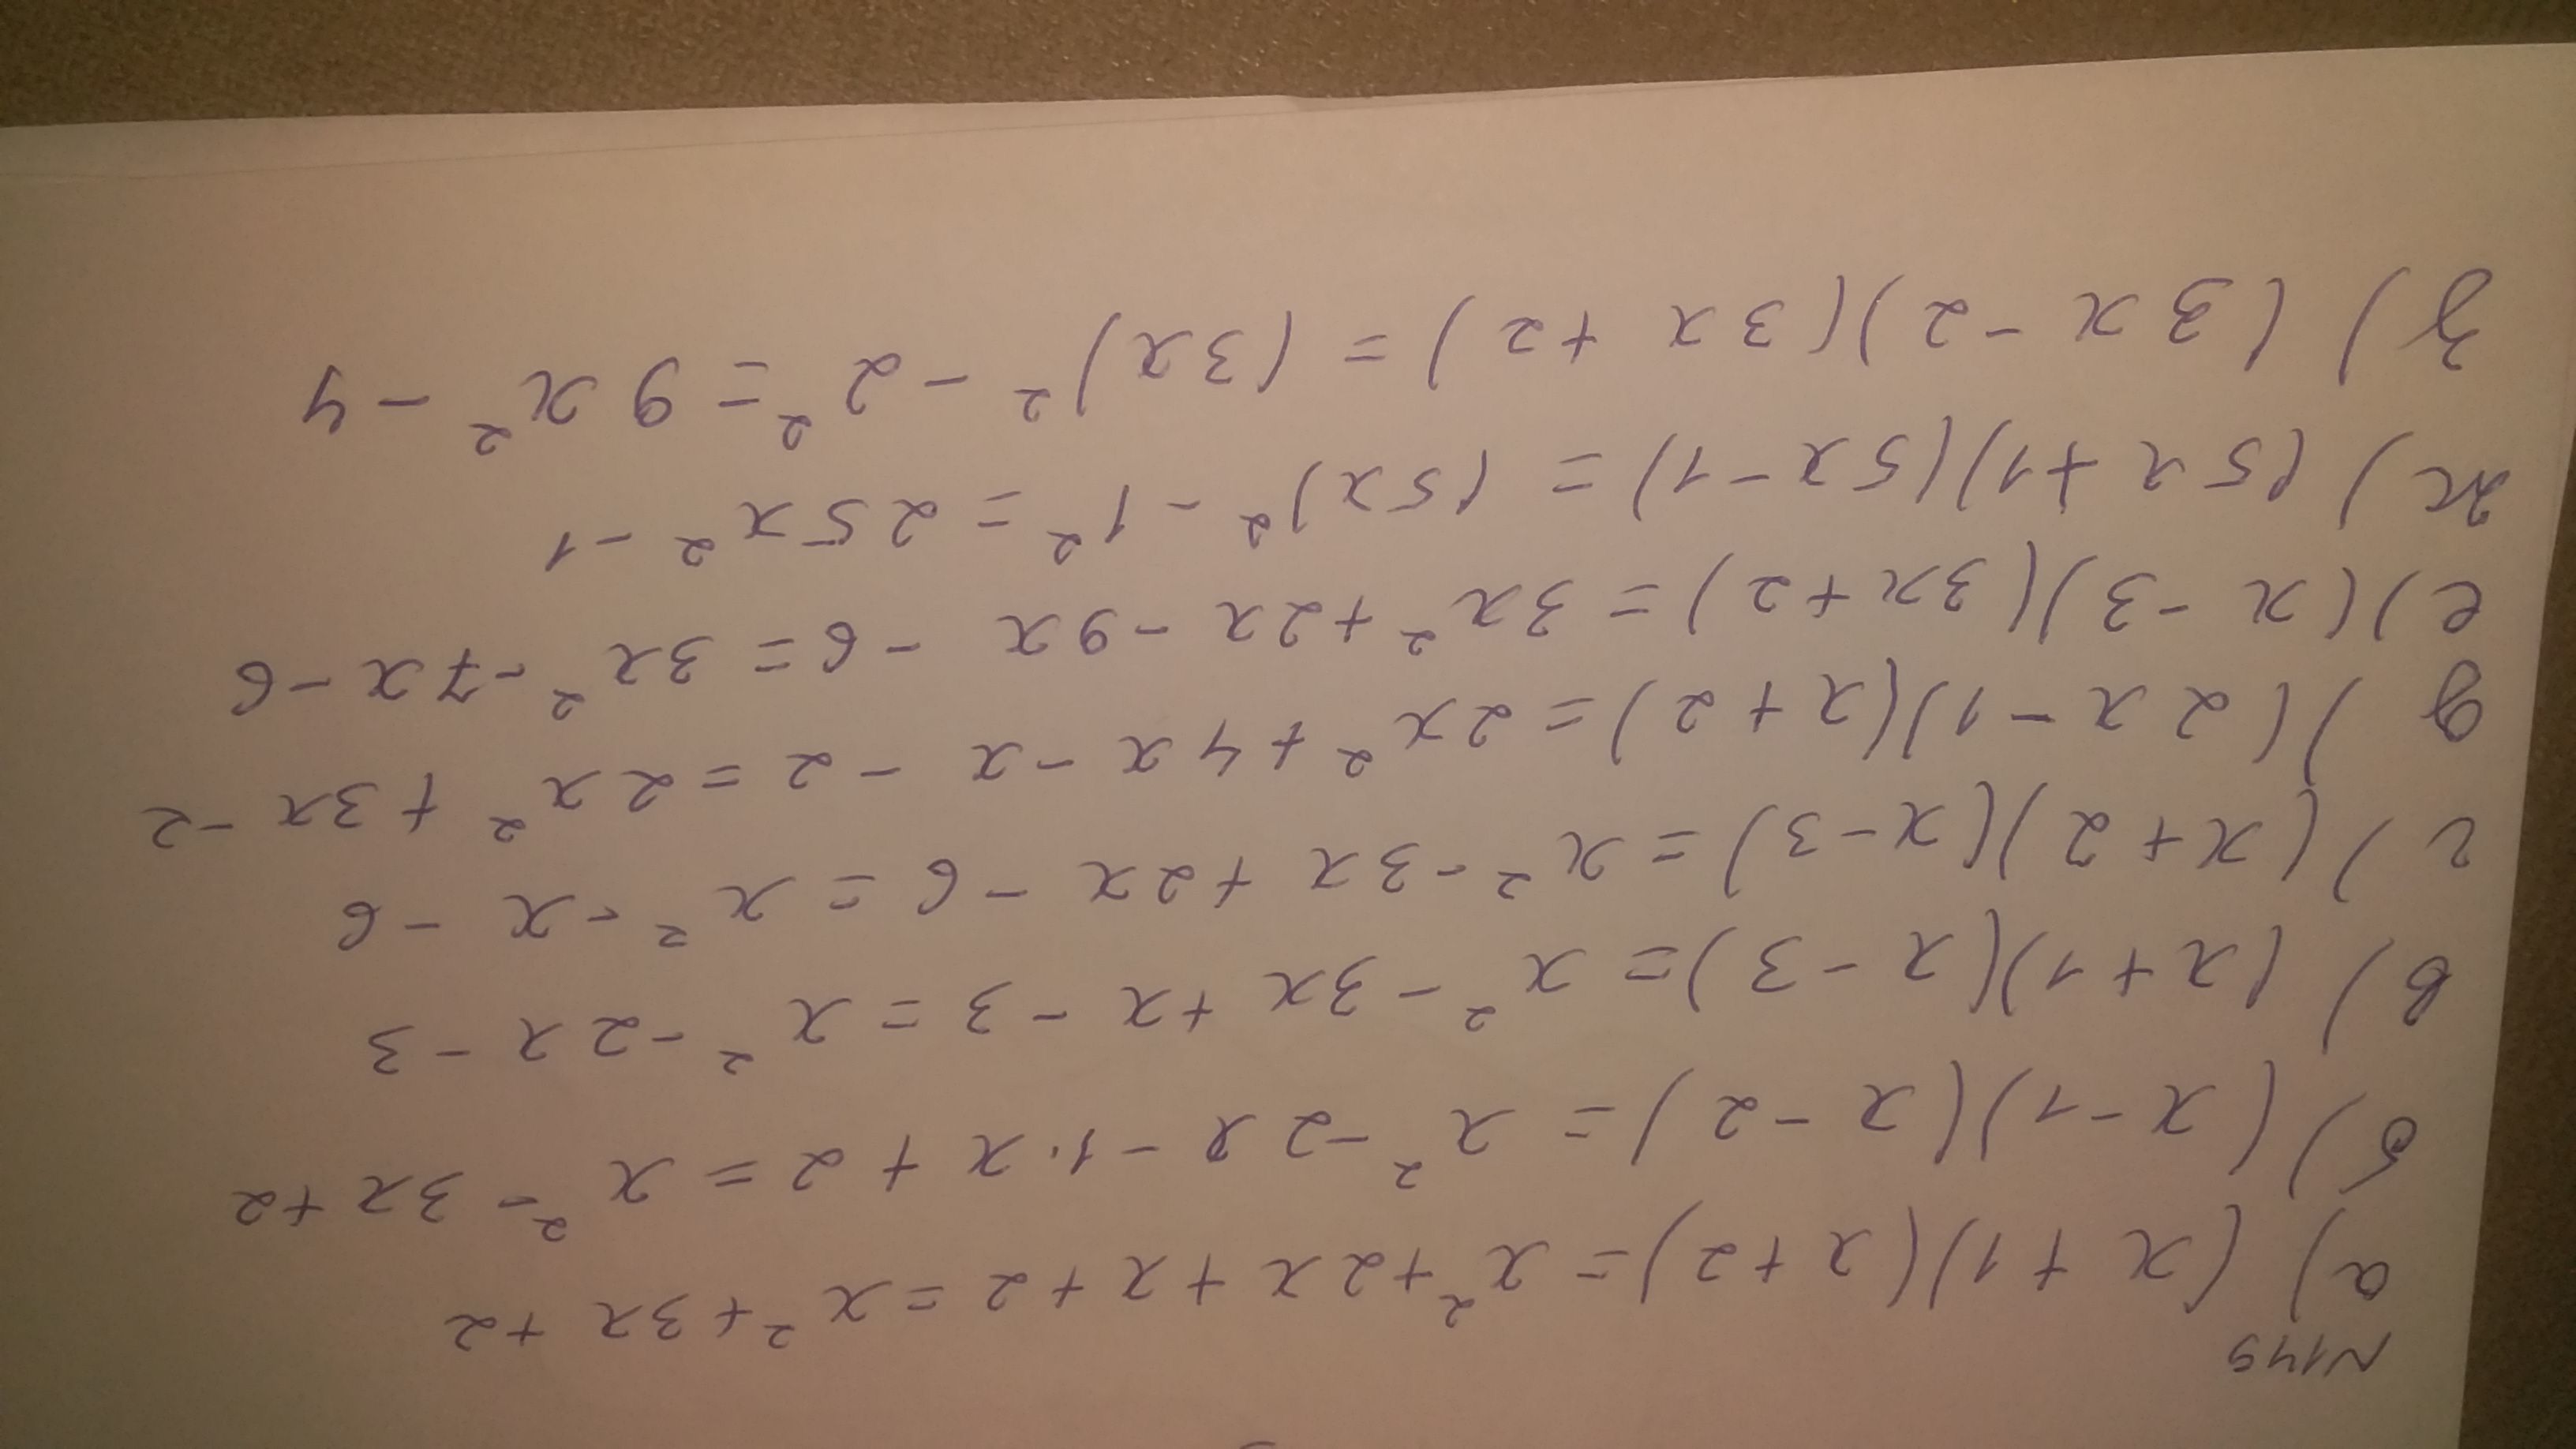 N149
а) (x+1)(x+2)=x²+2x+x+2=x²+3x+2
б) (x-1)(x-2)=x²-2x-1·x+2=x²-3x+2
в) (x+1)(x-3)=x²-3x+x-3=x²-2x-3
г) (x+2)(x-3)=x²-3x+2x-6=x²-x-6
д) (2x-1)(x+2)=2x²+4x-x-2=2x²+3x-2
е) (x-3)(3x+2)=3x²+2x-9x-6=3x²-7x-6
ж) (5x+1)(5x-1)=(5x)²-1²=25x²-1
з) (3x-2)(3x+2)=(3x)²-2²=9x²-4